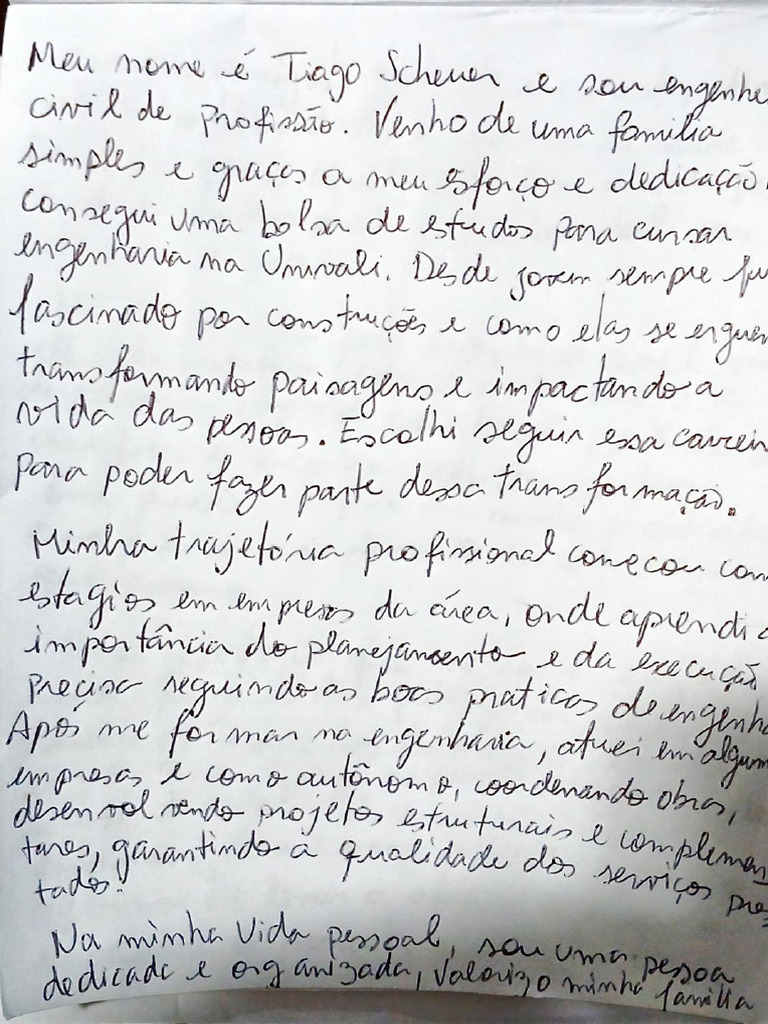 Meu nome é Tiago Scheuer e sou engenhe
civil de profissão. Venho de uma familia
simples e graças a meu esforço e dedicação
consegui uma bolsa de estudos para cursar
engenharia na Univali. Desde jovem sempre fu
fascinado por construções e como elas se erguem
transformando paisagens e impactando a
vida das pessoas. Escolhi seguir essa carrei
para poder fazer parte dessa transformação.
Minha trajetória profissional começou com
estagios em empresas da área, onde aprendi a
importância do planejamento e da execução
precisa seguindo as boas praticas de engenha
Após me formar na engenharia, atuei em algum
empresas e como autônomo, coordenando obras,
desenvolvendo projetos estruturais e complemen
tares, garantindo a qualidade dos serviços pres
tados.
Na minha vida pessoal, sou uma pessoa
dedicada e organizada, valorizo minha familia